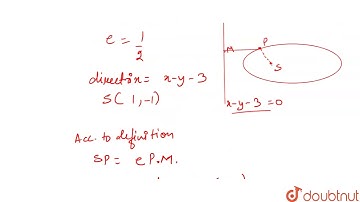 e = 1/2
directrix = x-y-3
S( 1,-1)
P
M
S
x-y-3 =0
Acc. to definition
SP = e P.M.
doubtnut